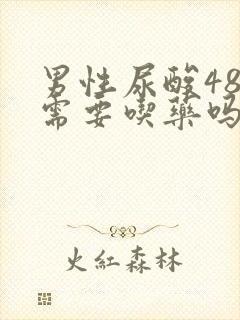 男性尿酸48
需要喫藥吗
火紅森林